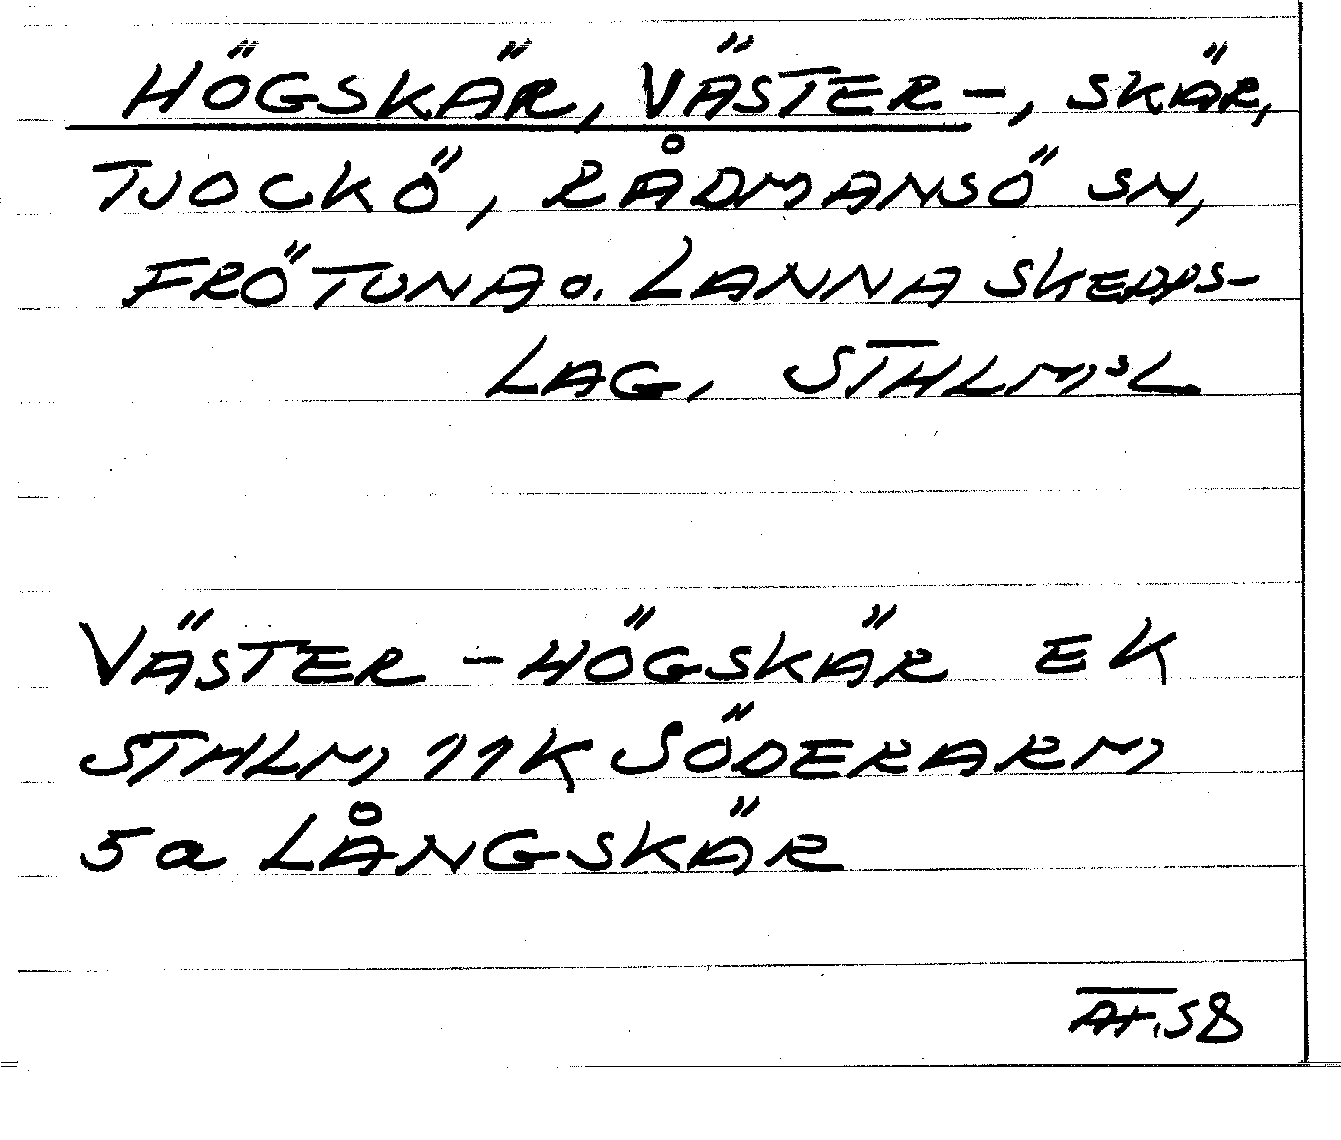 HÖGSKÄR, VÄSTER-, SKÄR,
TJOCKÖ, RÅDMANSÖ SN,
FRÖTUNA o. LANNA SKEPPS-
LAG, STHLM'S L
VÄSTER-HÖGSKÄR EK
STHLM 11K SÖDERARM
5a LÅNGSKÄR
58